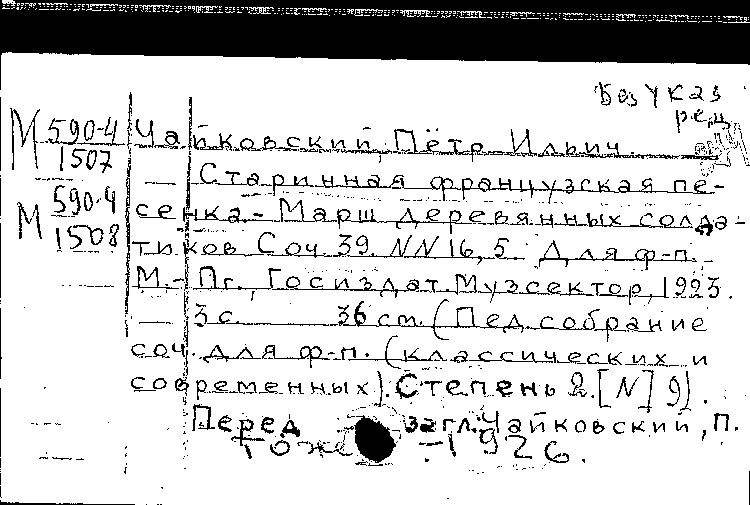 Без УК23
ред
М 590-4
1507
М 590-4
1508
Чайковский, Пётр Ильич.
— Старинная французская пе-
сенка.- Марш деревянных солда-
тиков Соч 39. NN 16, 5. Для ф-п.
М.- Пг., Госиздат. Музсектор, 1923.
— 3 с. 36 см. (Пед. собрание
соч. для ф-п. (классических и
современных). Степень 2. [N] 9).
Перед загл. Чайковский, П.
Тоже -1926.